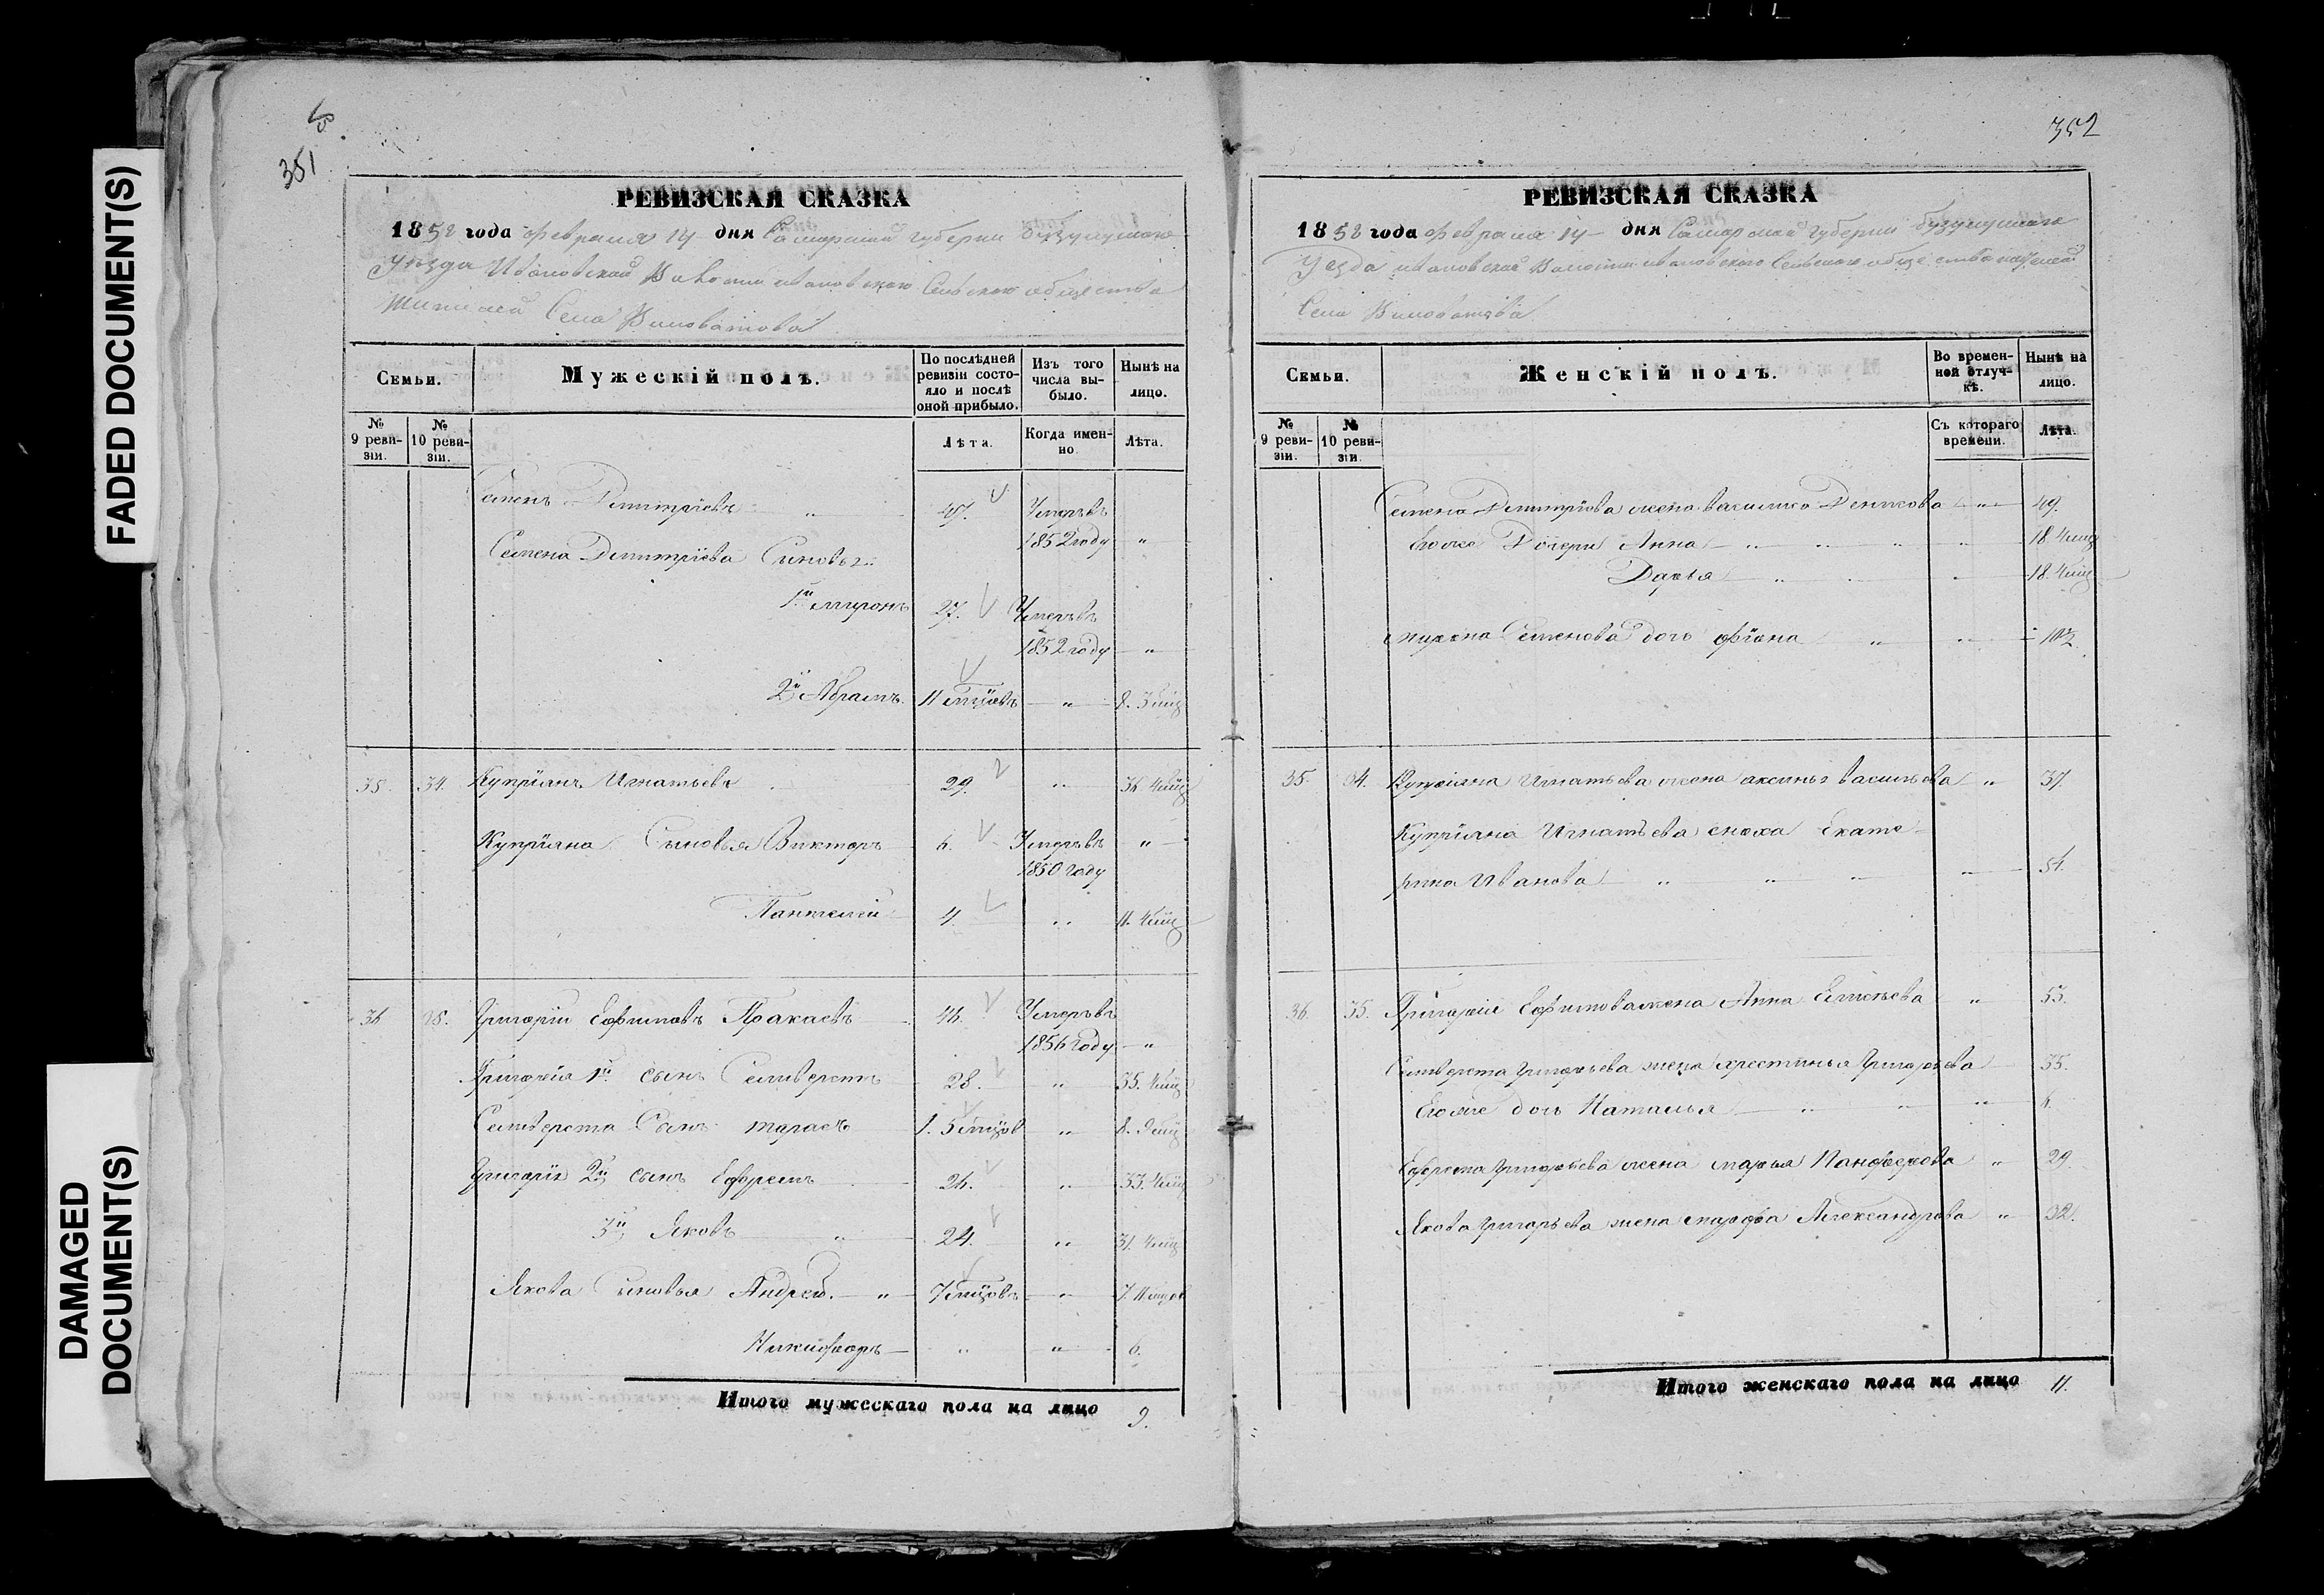 FADED DOCUMENT(S)
DAMAGED
DOCUMENT(S)
351
РЕВИЗСКАЯ СКАЗКА
1858 года февраля 14 дня Самарской губернии Бузулукского
Уезда Ивановской Волости ивановского Сельского общества
жителей Села Виловатова
Семьи.
Мужескій полъ.
По послѣдней ревизіи состояло и послѣ оной прибыло.
Изъ того числа выбыло.
Нынѣ на лицо.
№ 9 ревизіи.
№ 10 ревизіи.
Лѣта.
Когда именно.
Лѣта.
Семенъ Дмитріевъ " 47. Умеръ въ
1852 году "
Семена Дмитріева Сыновья
1й миронъ 27. Умеръ въ
1852 году "
2й Абрамъ. 11 мцовъ " 8. 3 мц
35. 34. Купріянъ Игнатьевъ 29. " 36 4 мц
Купріяна Сыновья Викторъ 6. Умеръ въ "
1850 году
Пантелей 4. " 11. 4 мц
36 35. Григорій Ефимовъ 46. Умеръ въ
1856 году "
Григорія 1й сынъ Селиверстъ 28. " 35. 4 мц
Селиверста Сынъ тарасъ 1. 5 мцов " 8. 9 мц
Григорія 2й сынъ Ефремъ 26. " 33. 4 мц
3й Яковъ " 24. " 31. 4 мц
Якова Сыновья Андрей. " 7 мцовъ " 7. 11 мцов
Никифоръ " " 6.
Итого мужескаго пола на лицо 9.
352
РЕВИЗСКАЯ СКАЗКА
1858 года февраля 14 дня Самарской губернии бузулукского
Уезда ивановской Волости ивановского Сельского общества жителей
Села Виловатова
Семьи.
Женскій полъ.
Во временной отлучкѣ.
Нынѣ на лицо.
№ 9 ревизіи.
№ 10 ревизіи.
Съ котораго времени.
Лѣта.
Семена Дмитріева жена василиса " 49.
Егоже Дочери Анна " " " " 18. 4 мц
Дарья " " 18. 4 мц
мирона Семенова дочь " " 10½
35. 34. Купріяна Игнатьева жена аксинья васильева " 37.
Купріяна Игнатьева сноха Екате-
рина Иванова " " " " 54.
36. 35. Григорія Ефимова жена Анна " 53.
Селиверста Григорьева жена хрестинья Григорьева 35.
Егоже дочь Наталья " " " 6.
Ефрема Григорьева жена марья Панферова " 29.
Якова Григорьева жена марфа Александрова " 32.
Итого женскаго пола на лицо 11.